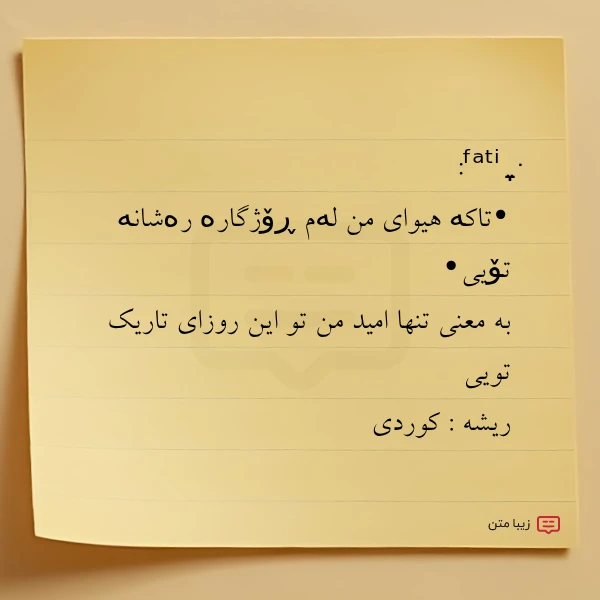 fati
•تاکە هیوای من لەم ڕۆژگارە رەشانە
تۆیی•
به معنی تنها امید من تو این روزای تاریک
تویی
ریشه : کوردی
زیبا متن